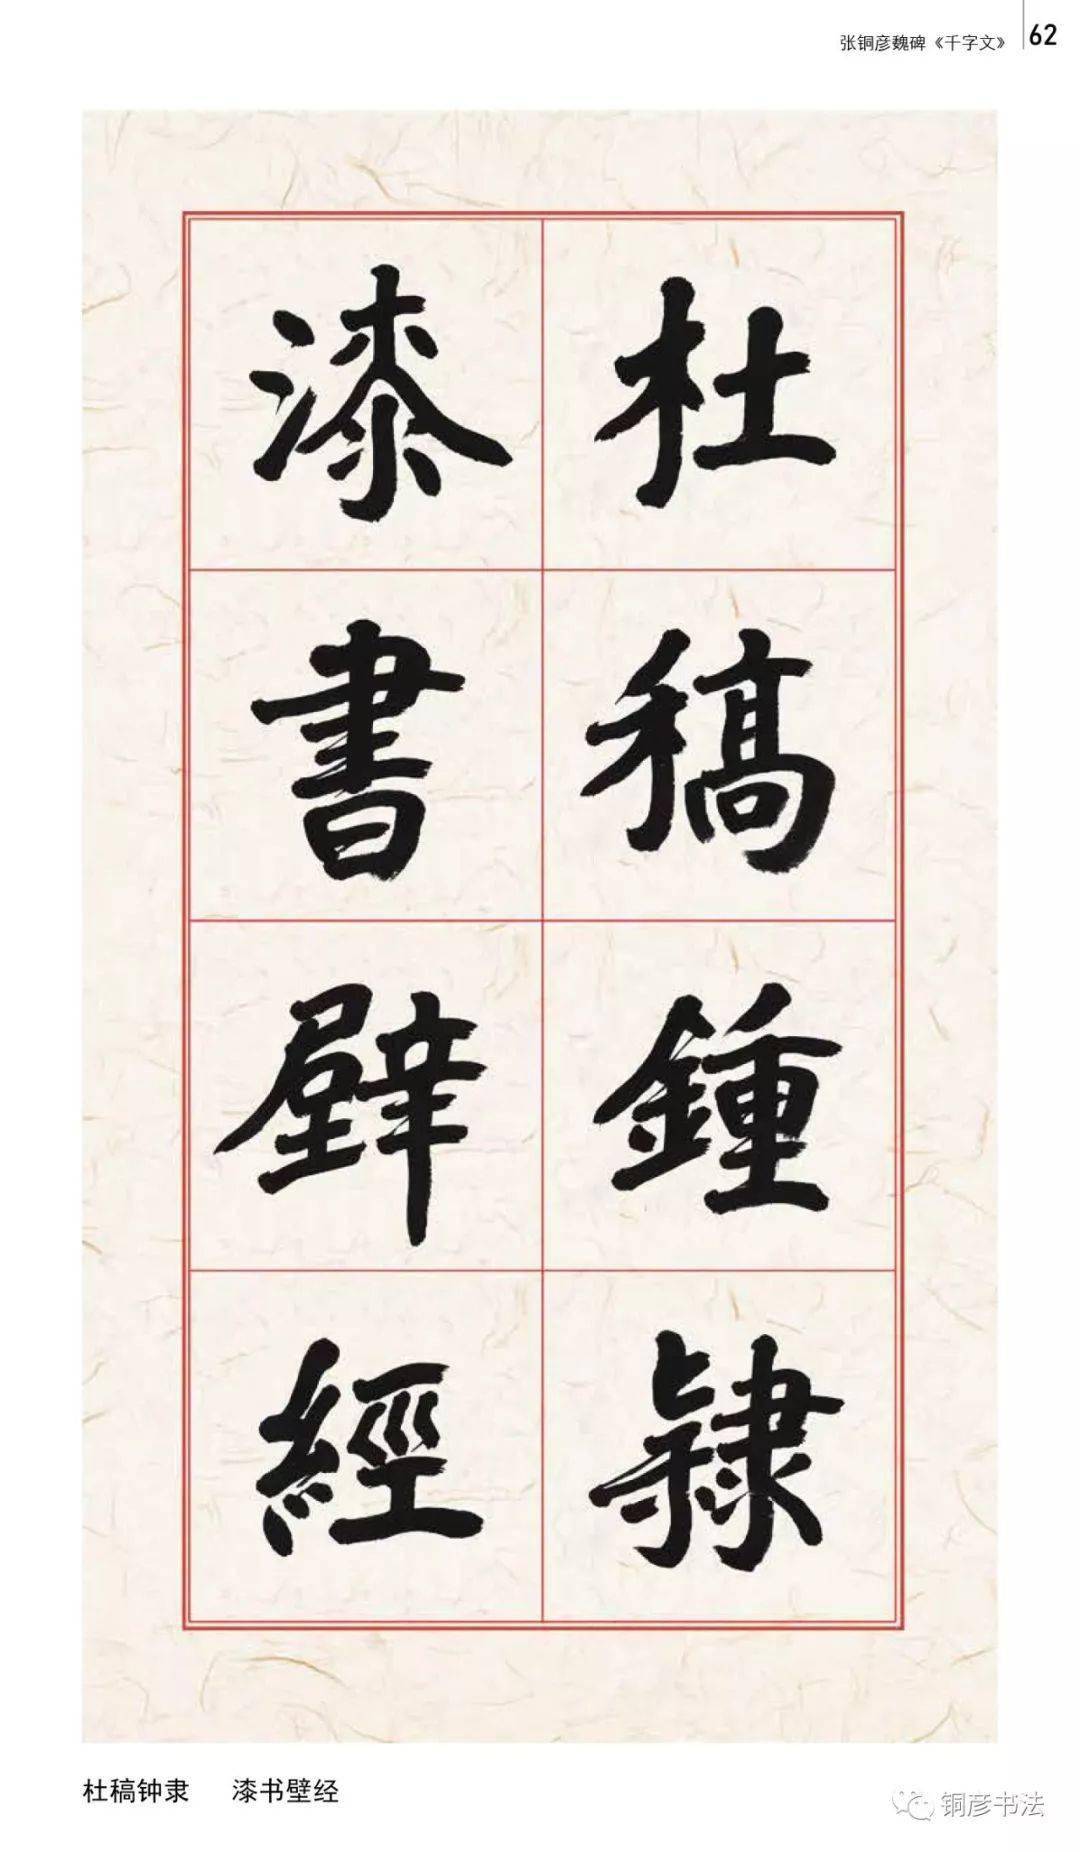 张铜彦魏碑《千字文》 62
杜稿鍾隸
漆書壁經
杜稿钟隶 漆书壁经
铜彦书法